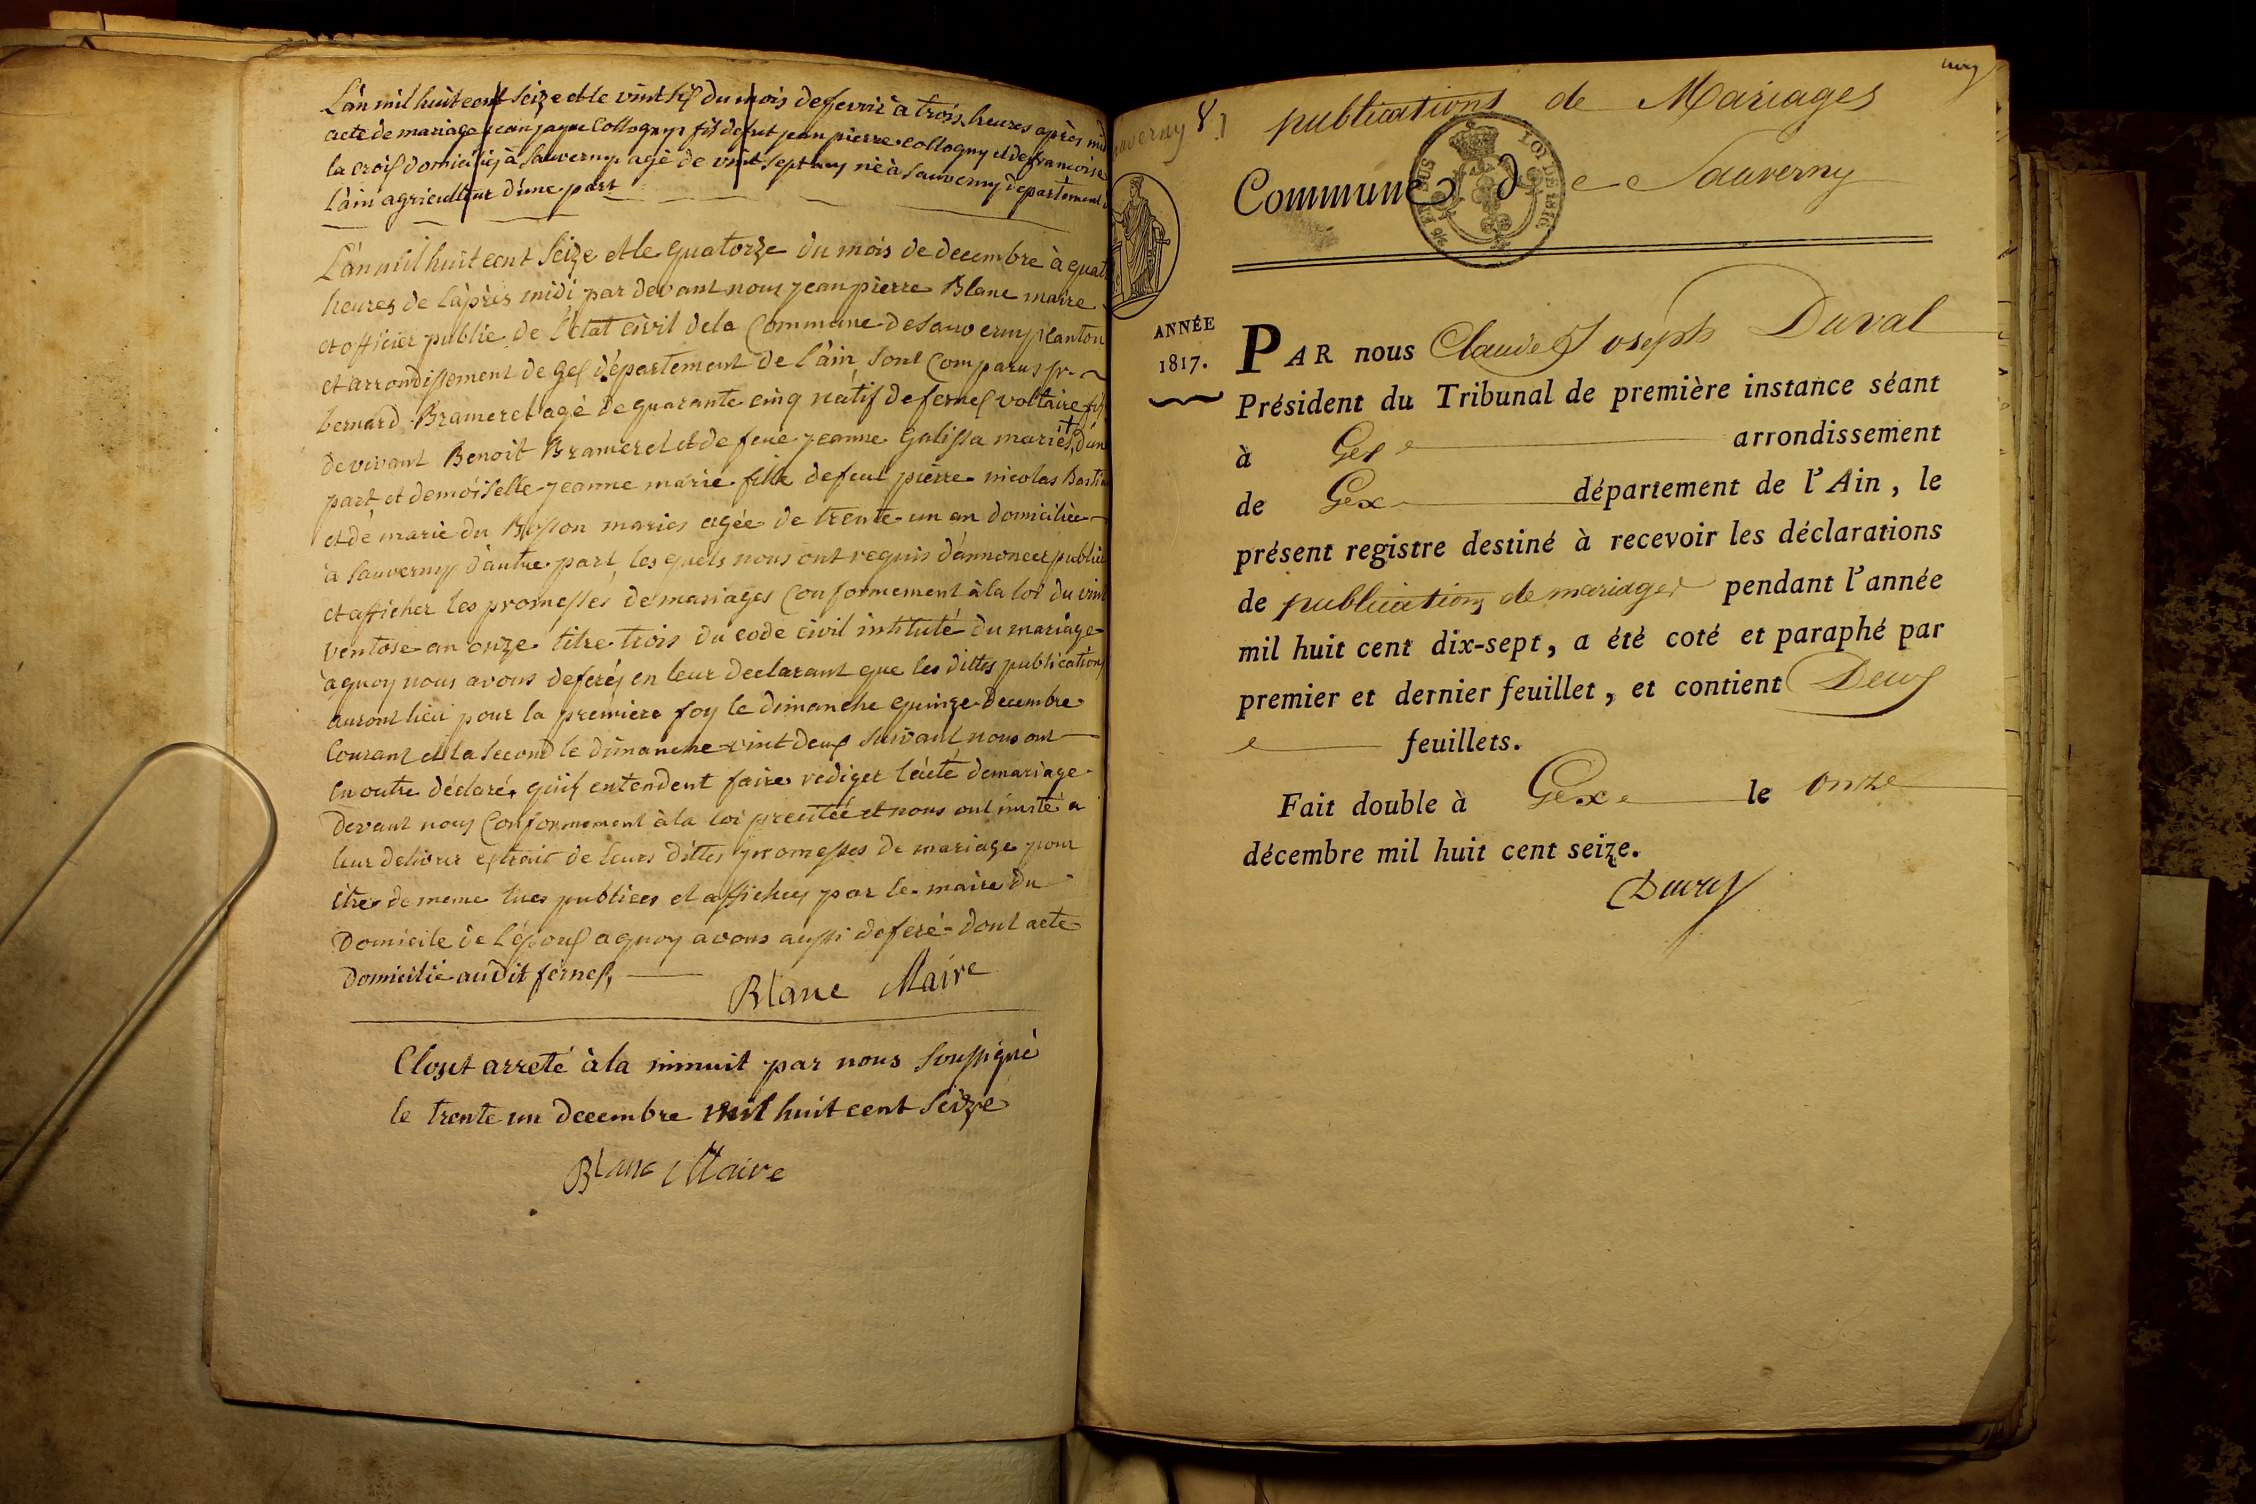 L'an mil huit cent seize et le vint six du mois de fevrié à trois heures après mid
acte de mariage jean jaque Collogny fis de fut jean pierre Collogny et de francoise
la croix domiciliés à Sauverny agé de vint sept ans né à Sauverny departement
l'ain agriculteur d'une part
L'an mil huit cent Seize et le quatorze du mois de decembre à quat
heures de l'après midi par devant nous jean pierre Blanc maire
et officier public de l'état civil de la Commune de Sauverny canton
et arrondissement de Gex département de l'ain sont Comparus sr
bernard Brameret agé de quarante cinq nàtif de fernex voltaire fis
de vivant Benoit Brameret et de feue jeanne Galissa mariés, d'une
part et demoiselle jeanne marie fille de feu pierre nicolas Basti
et de marie du Bosson mariés agée de trente un an domiciliée
à Sauverny d'autre part les quels nous ont requis d'annoncer publié
et afficher les promesses de mariages Conformement à la loi du vint
ventose an onze titre trois du code civil intitulé du mariage
a quoy nous avons deferés en leur declarant que les dittes publications
auront lieu pour la première foy le dimanche quinze decembre
Courant et la second le dimanche vint deux suivant nous ont
en outre déclaré qu'ils entendent faire rediger l'acte de mariage
devant nous Conformement à la loi precitée et nous ont invité a
leur delivrer extrait de leurs dittes promesses de mariage pour
être de meme lues publiees et affichees par le maire du
Domicile de l'époux a quoy avons aussi deferé dont acte
domicilié audit fernex,
Blanc Maire
Clos et arreté à la minuit par nous Soussigné
le trente un decembre mil huit cent Seize
Blanc Maire
Sauverny 8
publications de Mariages
Commune de Sauverny
LOI DE 1816
ANNÉE
1817.
PAR nous Claude Joseph Duval
Président du Tribunal de première instance séant
à Gex arrondissement
de Gex département de l'Ain, le
présent registre destiné à recevoir les déclarations
de publications de mariages pendant l'année
mil huit cent dix-sept, a été coté et paraphé par
premier et dernier feuillet, et contient Deux
feuillets.
Fait double à Gex le onze
décembre mil huit cent seize.
Duval